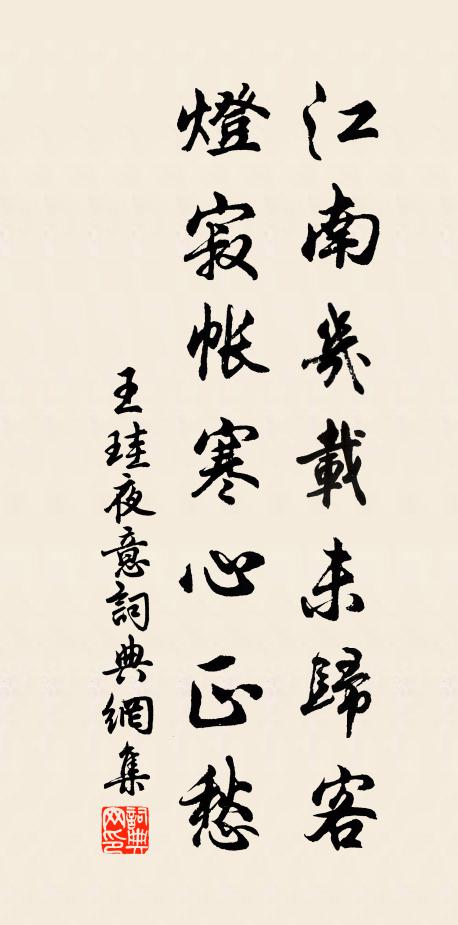 江南幾載未歸客
燈寂帳寒心正愁
王珪夜意詞典網集
詞典網印